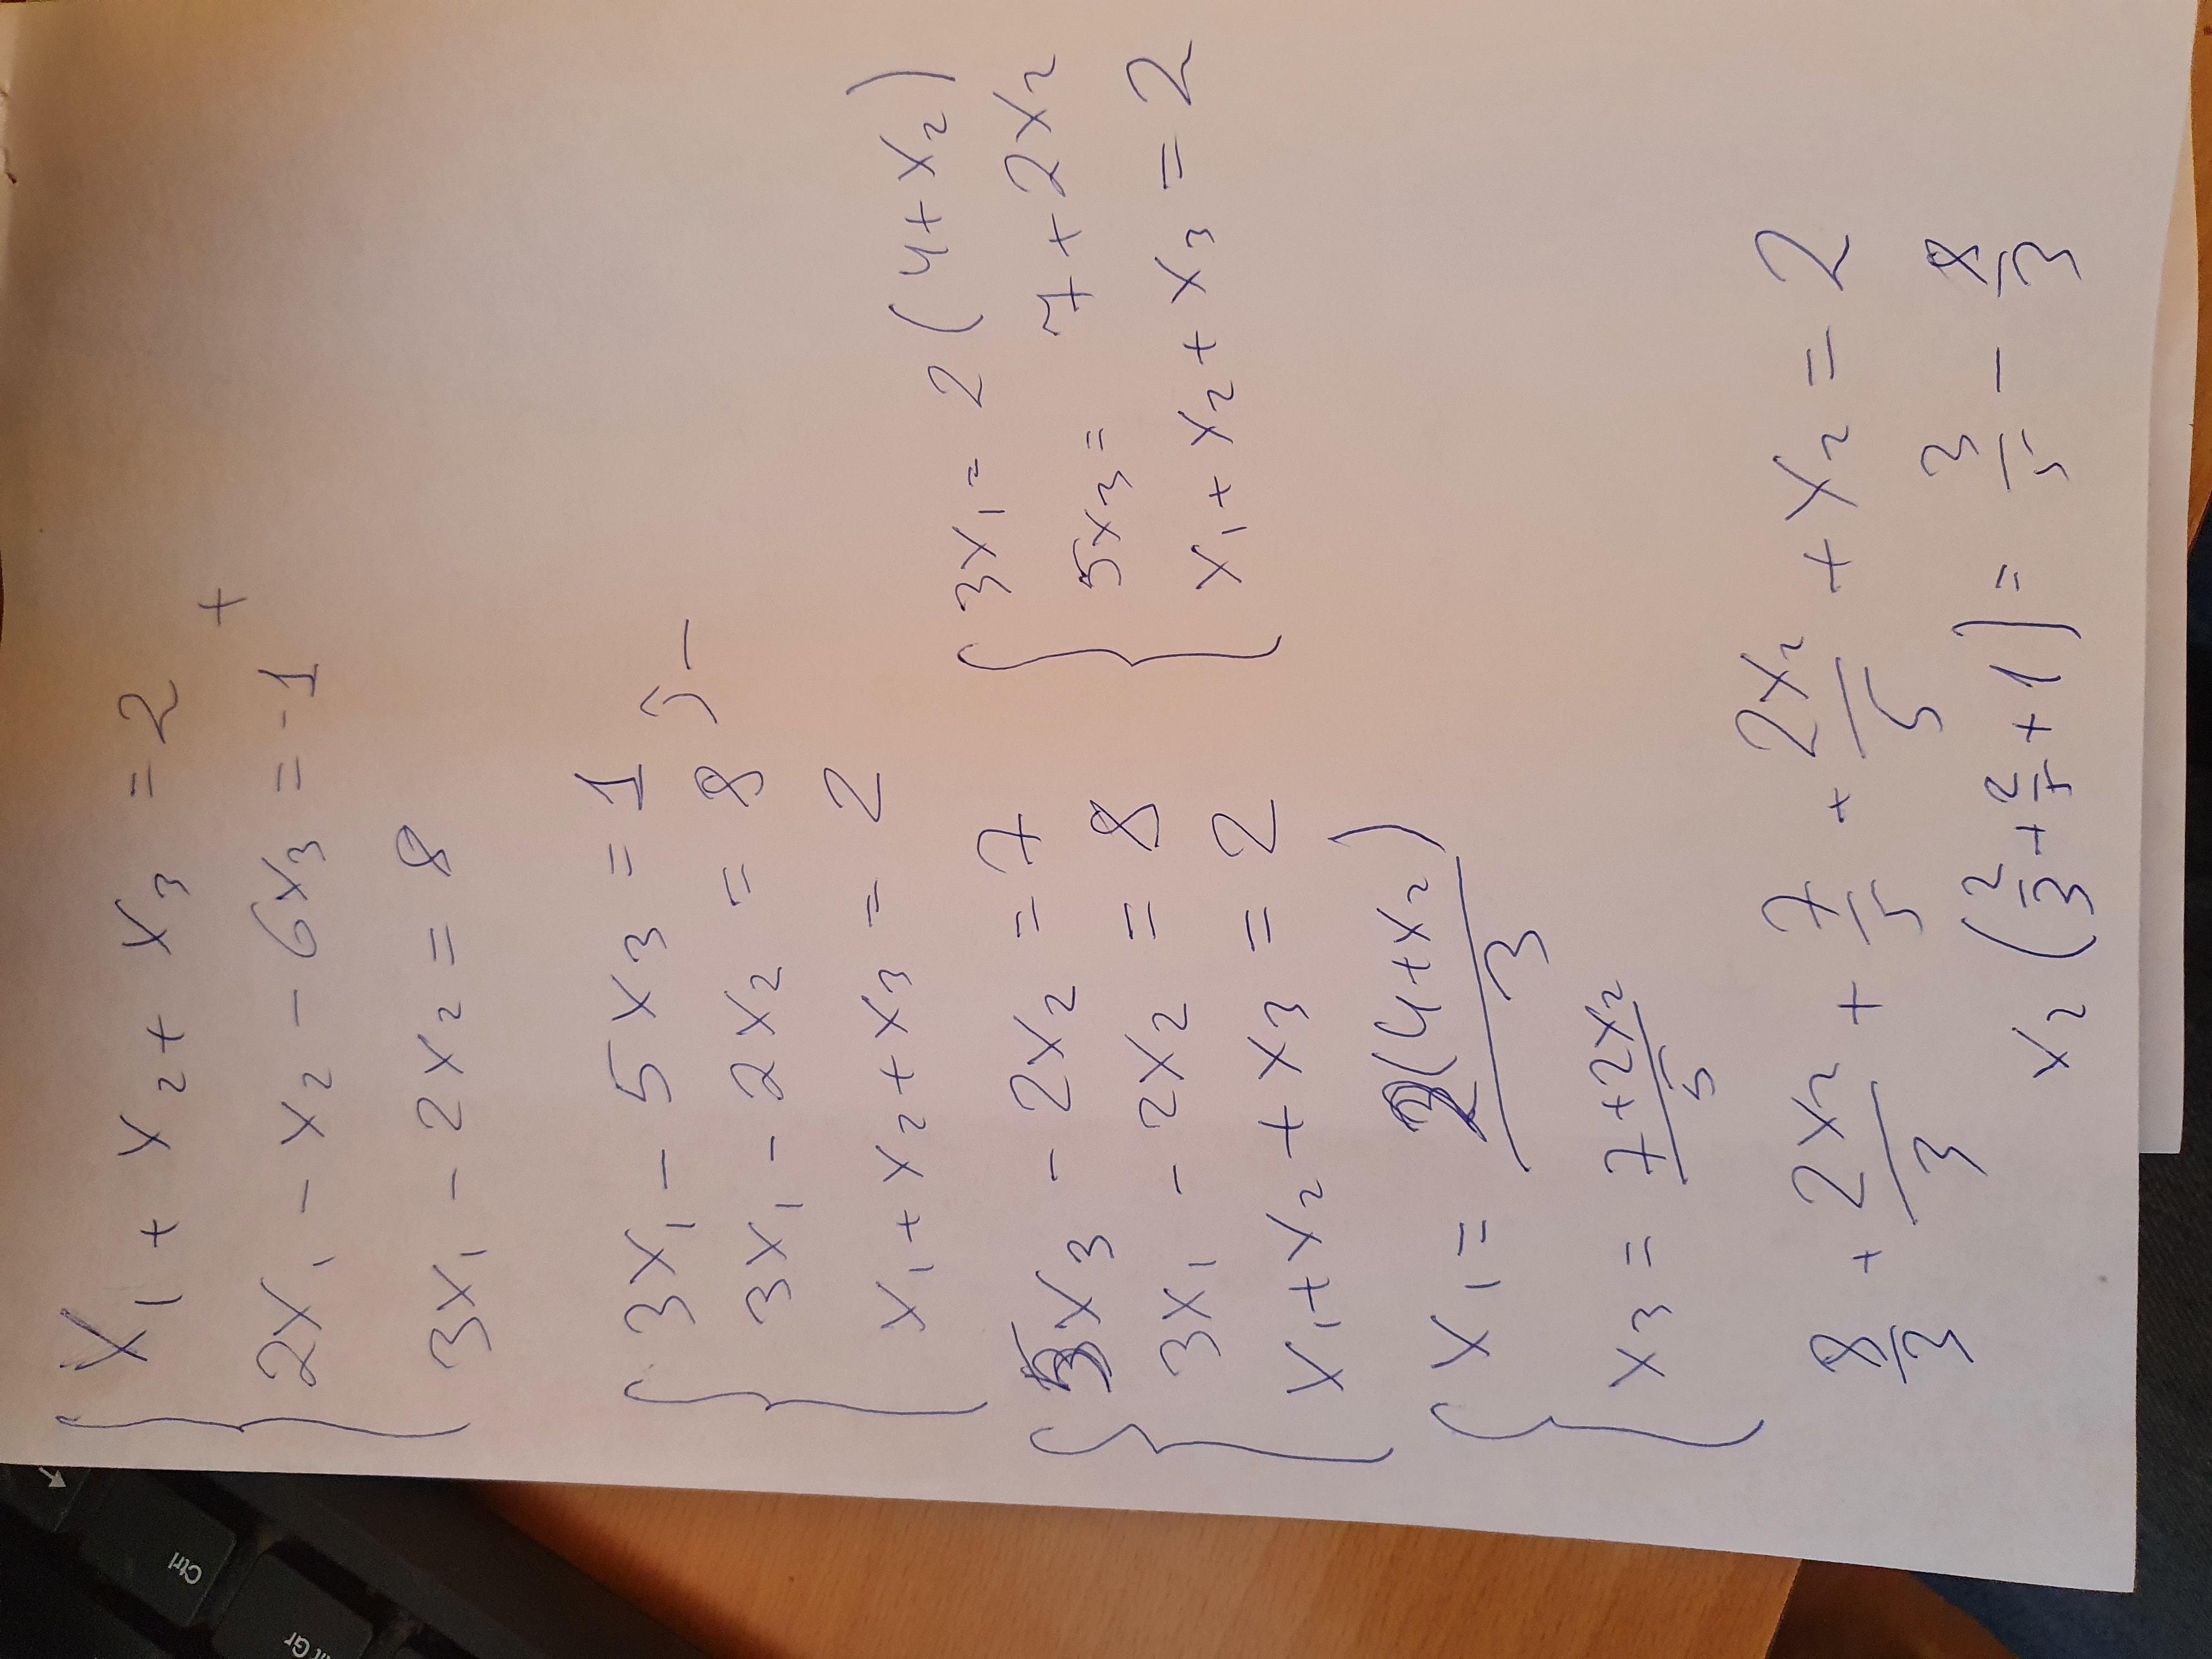 x₁ + x₂ + x₃ = 2
+
2x₁ - x₂ - 6x₃ = -1
3x₁ - 2x₂ = 8
3x₁ - 5x₃ = 1
-
3x₁ - 2x₂ = 8
x₁ + x₂ + x₃ = 2
5x₃ - 2x₂ = 7
3x₁ - 2x₂ = 8
x₁ + x₂ + x₃ = 2
3x₁ = 2(4 + x₂)
5x₃ = 7 + 2x₂
x₁ + x₂ + x₃ = 2
x₁ = 2(4 + x₂)/3
x₃ = 7 + 2x₂/5
8/3 + 2x₂/3 + 7/5 + 2x₂/5 + x₂ = 2
x₂ (2/3 + 2/5 + 1) = 3/5 - 8/3
Ctrl